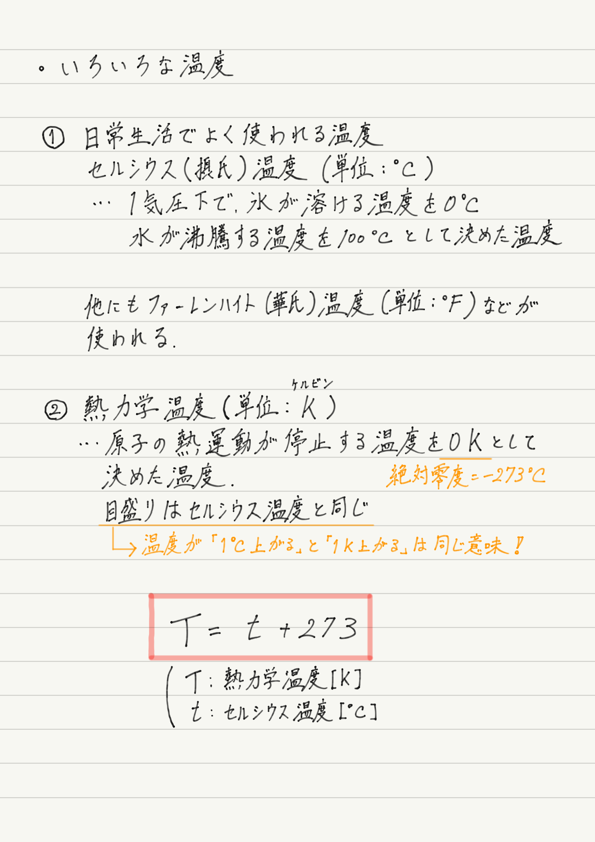 • いろいろな温度
① 日常生活でよく使われる温度
セルシウス(摂氏)温度 (単位:℃)
… 1気圧下で、氷が溶ける温度を0℃
水が沸騰する温度を100℃として決めた温度
他にもファーレンハイト(華氏)温度(単位:°F)などが
使われる.
ケルビン
② 熱力学温度(単位:K)
… 原子の熱運動が停止する温度を0Kとして
決めた温度.
絶対零度=-273℃
目盛りはセルシウス温度と同じ
↳温度が「1℃上がる」と「1K上がる」は同じ意味!
T = t + 273
T: 熱力学温度[K]
t: セルシウス温度[℃]